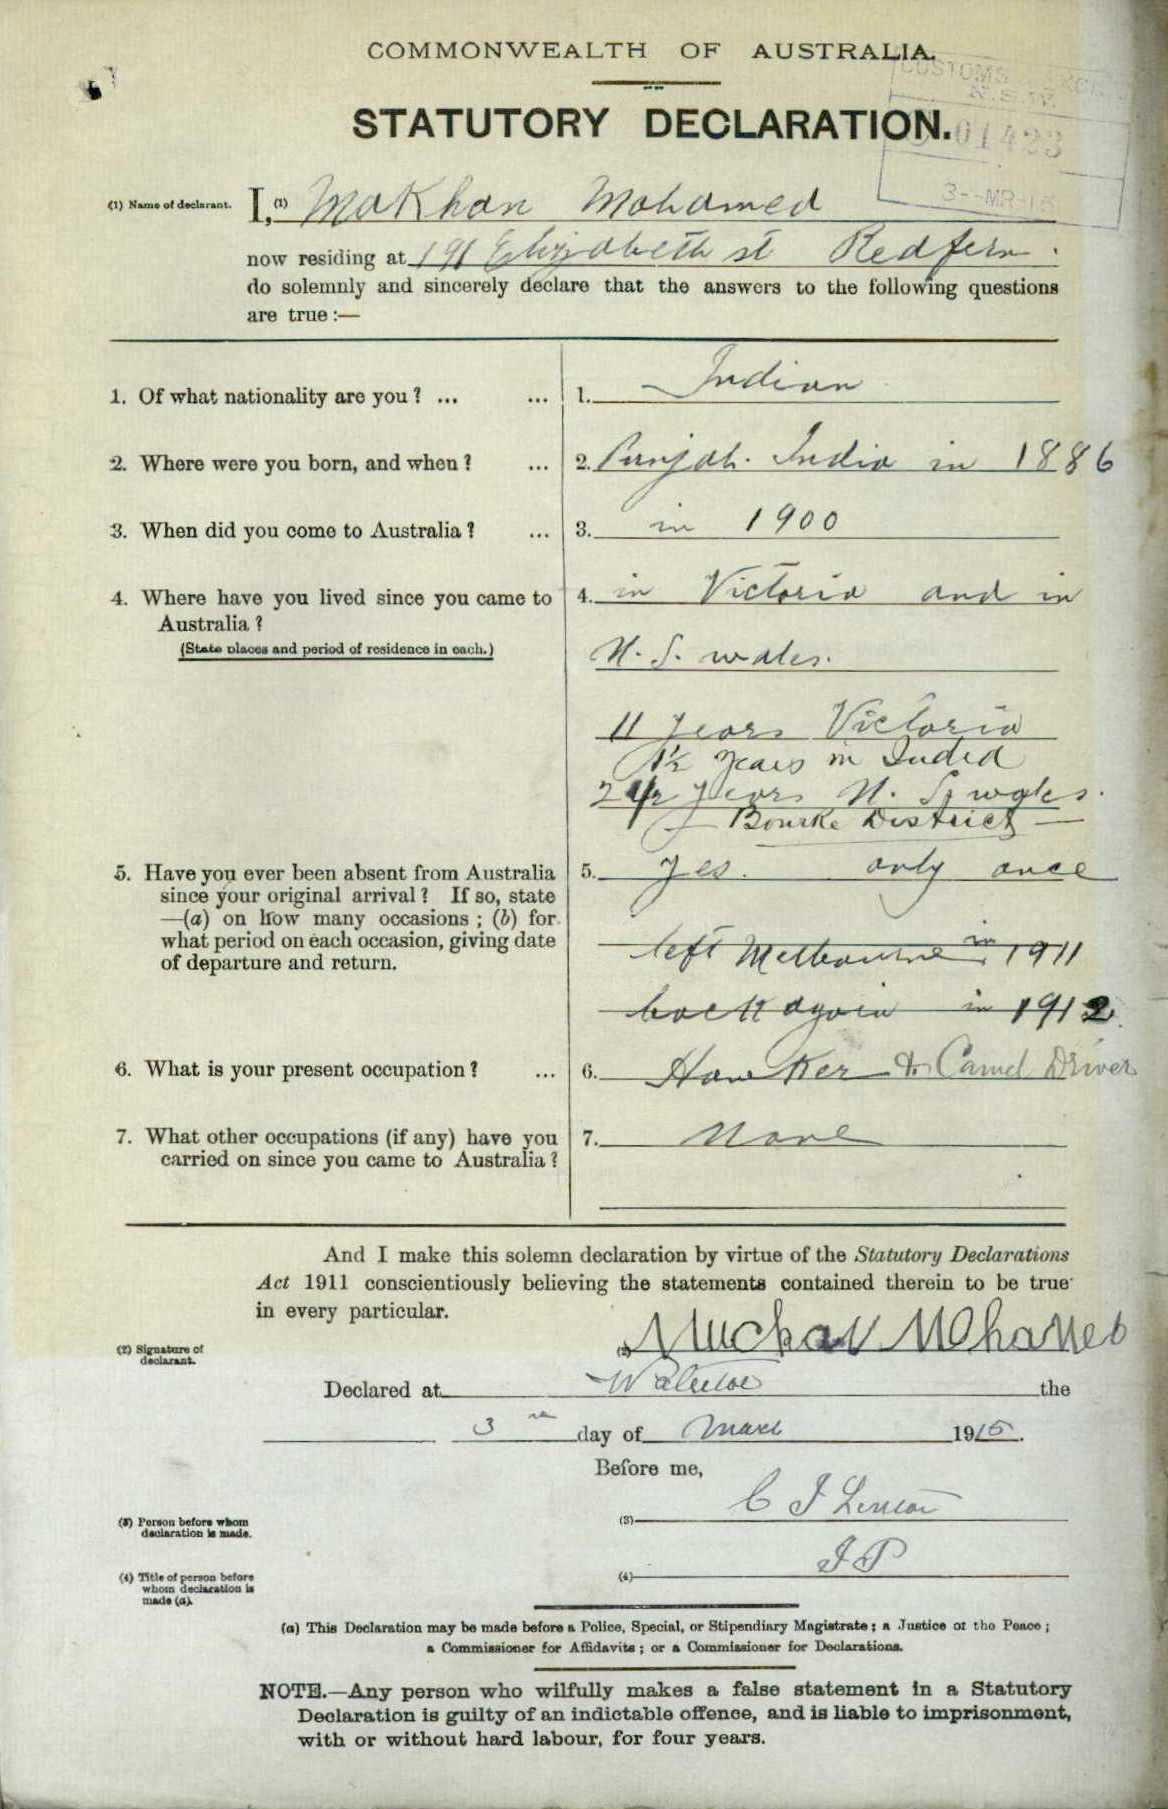 COMMONWEALTH OF AUSTRALIA.
CUSTOMS
N.S.W.
01423
3--MR-15
STATUTORY DECLARATION.
(1) Name of declarant. I,(1) Makhan Mohamed
now residing at 191 Elizabeth st Redfern.
do solemnly and sincerely declare that the answers to the following questions
are true :—
1. Of what nationality are you ? ... ... 1. Indian
2. Where were you born, and when ? ... 2. Punjab. India in 1886
3. When did you come to Australia ? ... 3. in 1900
4. Where have you lived since you came to 4. in Victoria and in
Australia ?
(State places and period of residence in each.) N. S. wales.
11 years Victoria
1½ years in India
2 1/2 years N. S. wales.
Bourke District
5. Have you ever been absent from Australia 5. yes. only once
since your original arrival ? If so, state
—(a) on how many occasions ; (b) for
what period on each occasion, giving date left Melbourne in 1911
of departure and return.
back again in 1912.
6. What is your present occupation ? ... 6. Hawker & Camel Driver
7. What other occupations (if any) have you 7. None
carried on since you came to Australia ?
And I make this solemn declaration by virtue of the Statutory Declarations
Act 1911 conscientiously believing the statements contained therein to be true
in every particular.
(2) Signature of
declarant.
(2) Muchan Mohamed
Declared at Waterloo the
3rd day of March 1915.
Before me,
(3) Person before whom
declaration is made.
(3) C J
(4) Title of person before
whom declaration is
made (a).
(4) JP
(a) This Declaration may be made before a Police, Special, or Stipendiary Magistrate ; a Justice of the Peace ;
a Commissioner for Affidavits ; or a Commissioner for Declarations.
NOTE.—Any person who wilfully makes a false statement in a Statutory
Declaration is guilty of an indictable offence, and is liable to imprisonment,
with or without hard labour, for four years.